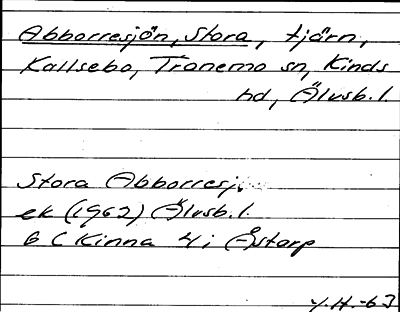 Abborresjön, Stora, tjärn,
Kallsebo, Tranemo sn, Kinds
hd, Älvsb.l.
Stora Abborresj.
ek (1962) Älvsb.l.
6 C Kinna 4 i Åstarp
Y.H.-63